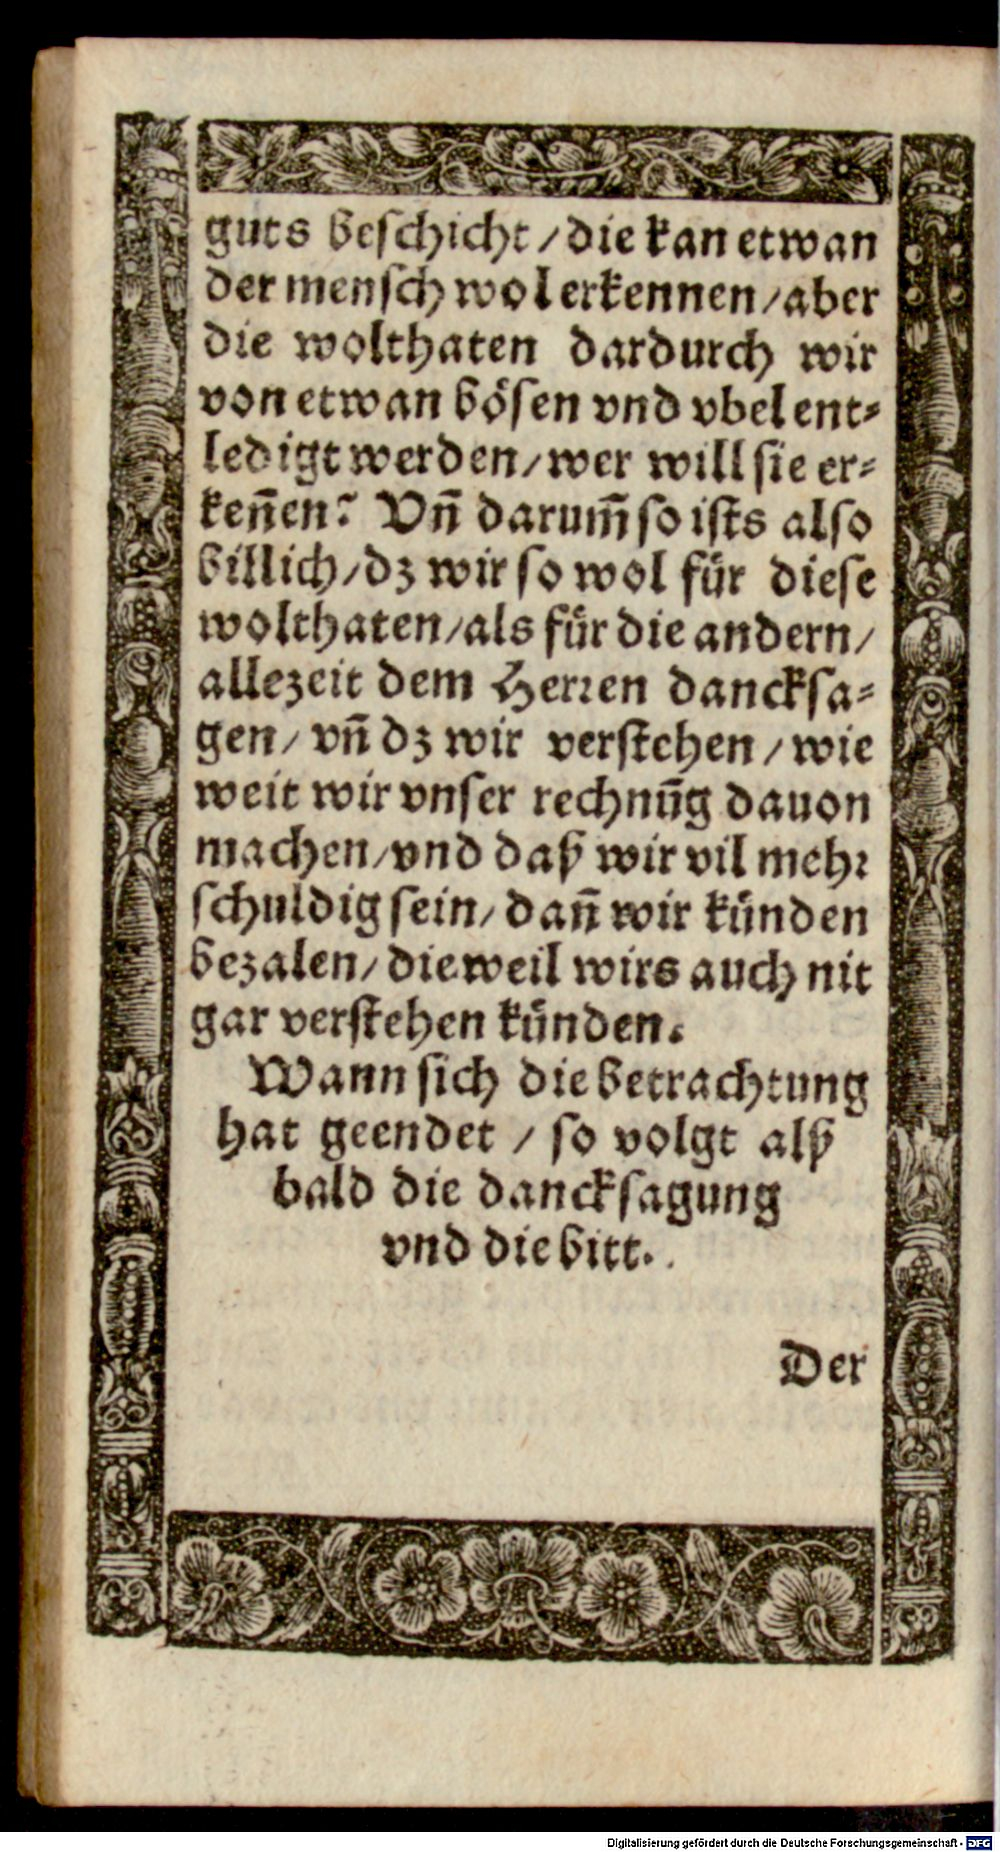 guts beschicht / die kan etwan
der mensch wol erkennen / aber
die wolthaten dardurch wir
von etwan bösen vnd vbel ent⸗
ledigt werden / wer will sie er⸗
keñen? Vñ darum̃ so ists also
billich / dz wir so wol für diese
wolthaten / als für die andern /
allezeit dem Herren dancksa⸗
gen / vñ dz wir verstehen / wie
weit wir vnser rechnũg dauon
machen / vnd daß wir vil mehr
schuldig sein / dañ wir künden
bezalen / dieweil wirs auch nit
gar verstehen künden.
Wann sich die betrachtung
hat geendet / so volgt alß
bald die dancksagung
vnd die bitt.
Der
Digitalisierung gefördert durch die Deutsche Forschungsgemeinschaft - DFG